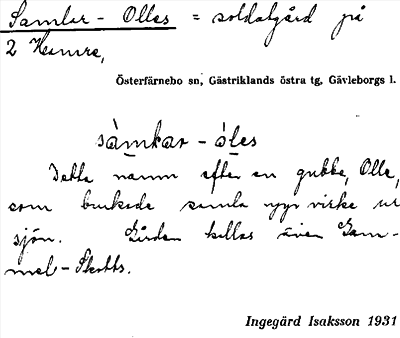 Samlar-Olles = soldatgård på
2 Hemre,
Österfärnebo sn, Gästriklands östra tg, Gävleborgs l.
sàmkar - óles
Detta namn efter en gubbe, Olle,
som brukade samla upp virke ur
sjön. Gården kallas även Gam-
mel-Skotts.
Ingegärd Isaksson 1931